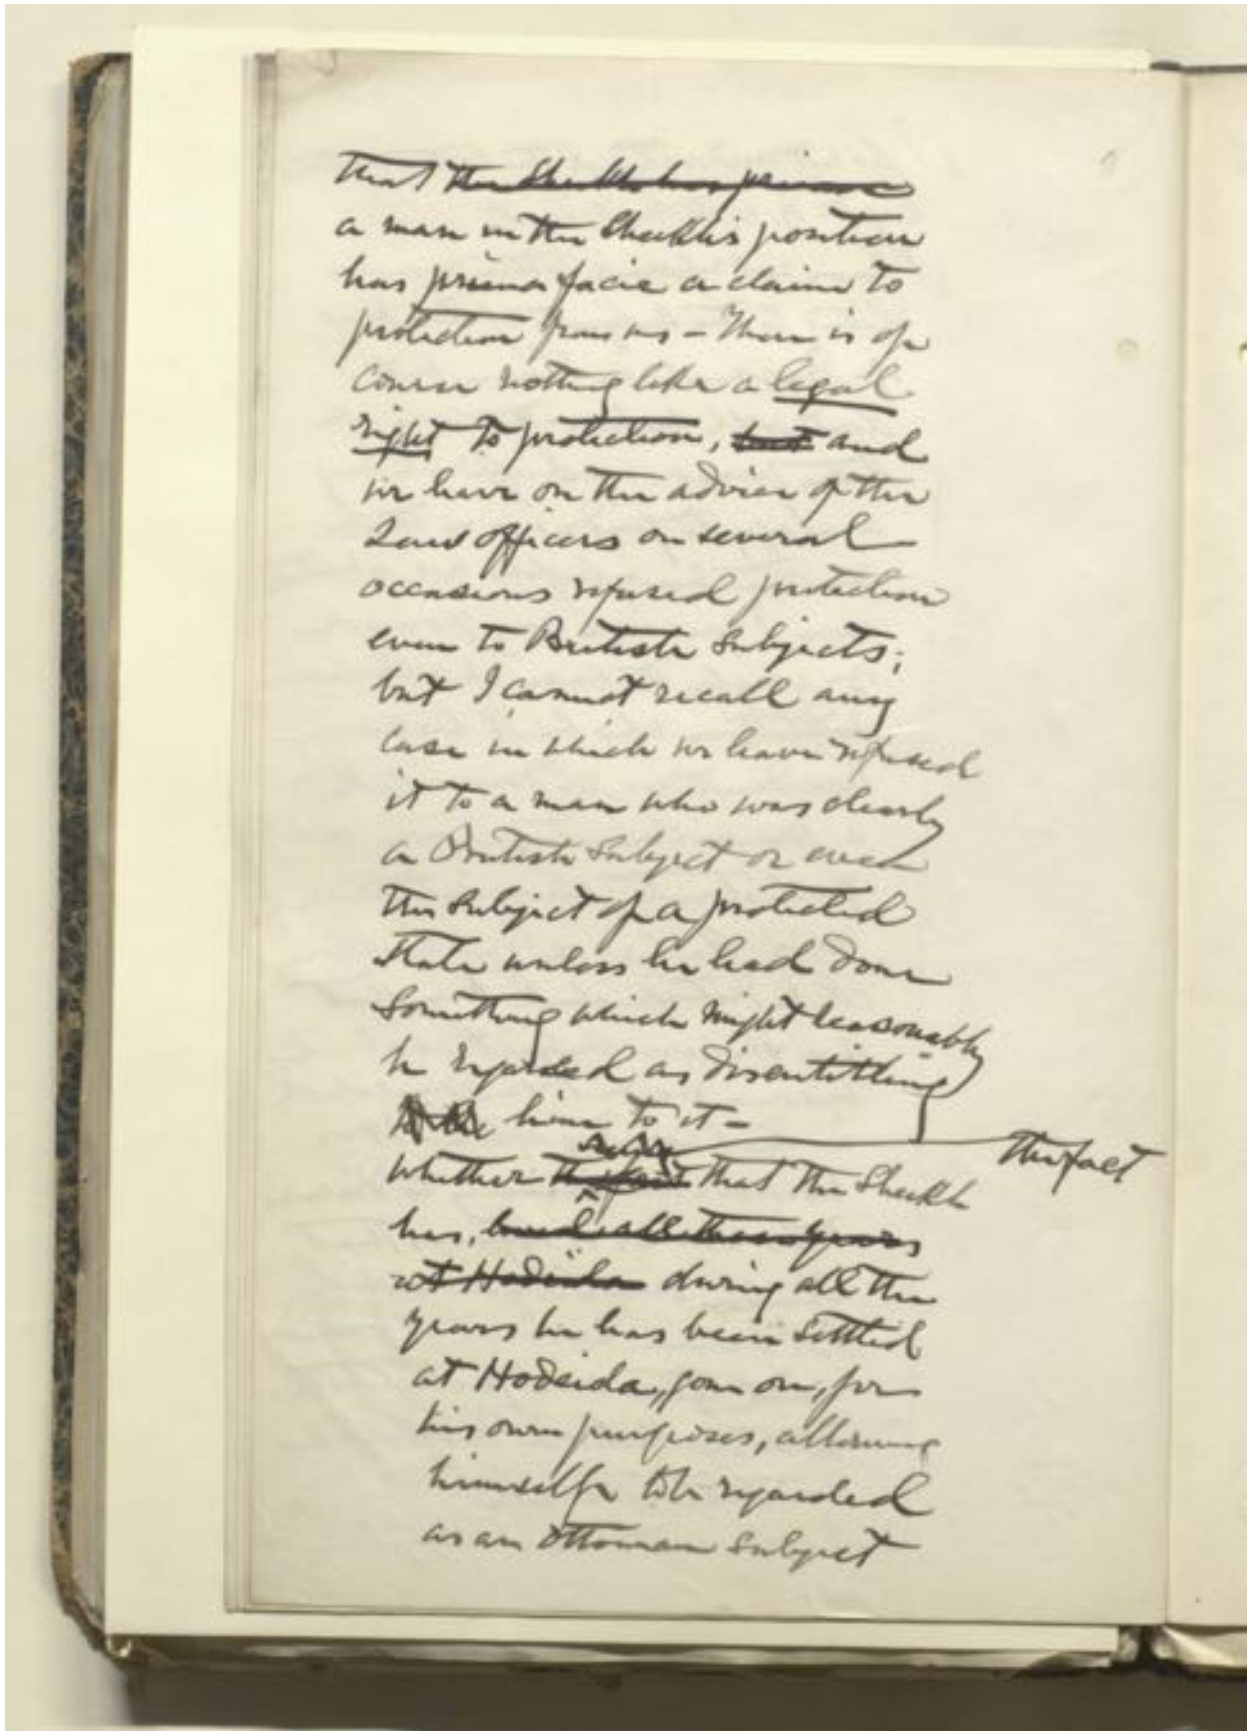 that the Sheikh has prima
a man in the Sheikh's position
has prima facie a claim to
protection from us - There is of
course nothing like a legal
right to protection, but and
we have on the advice of the
Law officers on several
occasions refused protection
even to British subjects;
but I cannot recall any
case in which we have refused
it to a man who was clearly
a British subject or even
the subject of a protected
State unless he had done
something which might reasonably
be regarded as disentitling
him to it -
the fact
whether the fact that the Sheikh
has, lived all these years
at Hodeida during all the
years he has been settled
at Hodeida, gone on, for
his own purposes, allowing
himself to be regarded
as an Ottoman subject